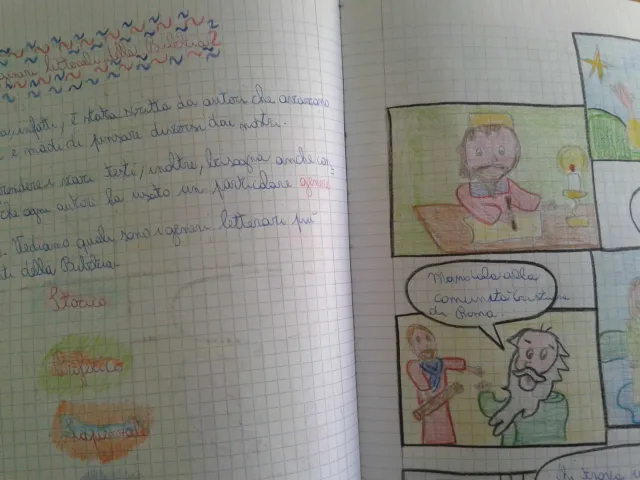 generi letterari della Bibbia?
infatti, è stata scritta da autori che avevano
e modi di pensare diversi dai nostri.
testi, inoltre, bisogna anche co=
che ogni autore ha usato un particolare genere
. Vediamo quali sono i generi letterari più
della Bibbia.
Storico
Sapienziale
Mandala alla
comunità cristiana
di Roma.